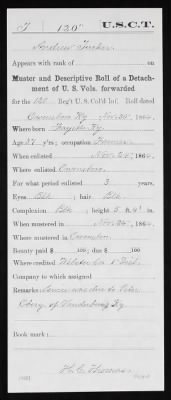 T 120" U.S.C.T.
Andrew Tinker
Appears with rank of
Muster and Descriptive Roll of a Detach-
ment of U. S. Vols. forwarded
for the 120 Reg't U. S. Col'd Inf. Roll dated
Owensboro Ky Nov. 30", 1864.
Where born Fayette Ky.
Age 37 y's; occupation Farmer
When enlisted Nov. 25", 1864.
Where enlisted Owensboro
For what period enlisted 3 years.
Eyes Blk; hair Blk
Complexion Blk; height 5 ft. in.
When mustered in Nov. 25", 1864.
Where mustered in Owensboro
Bounty paid $ 100; due $ 100
Where credited Webster Co.
Company to which assigned
Remarks: Service was due to Peter
of Ky
Book mark:
H. C. Thomas